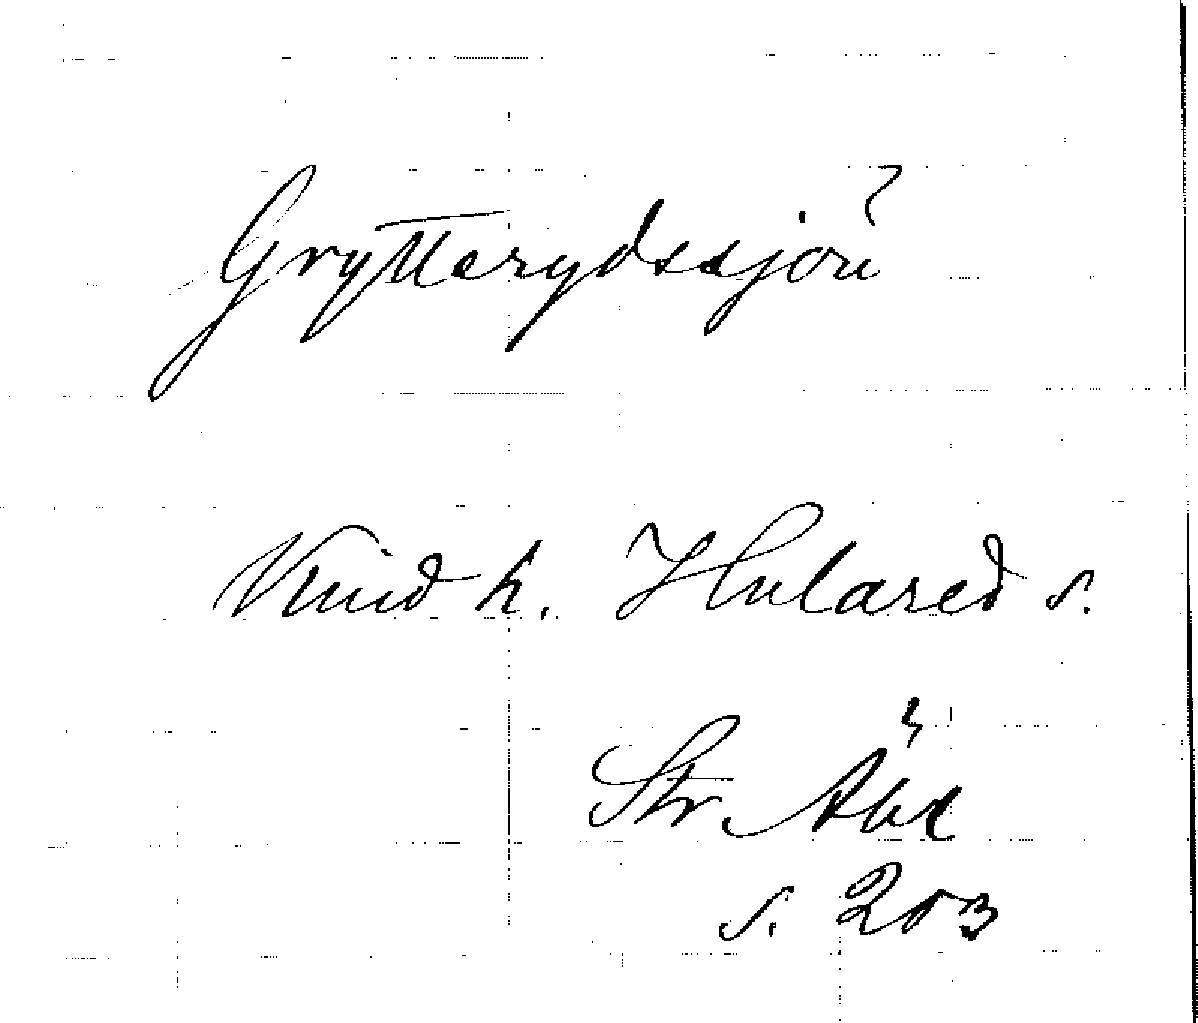 Grytterydssjön
Kind h. Hulared s.
Str.
s. 203